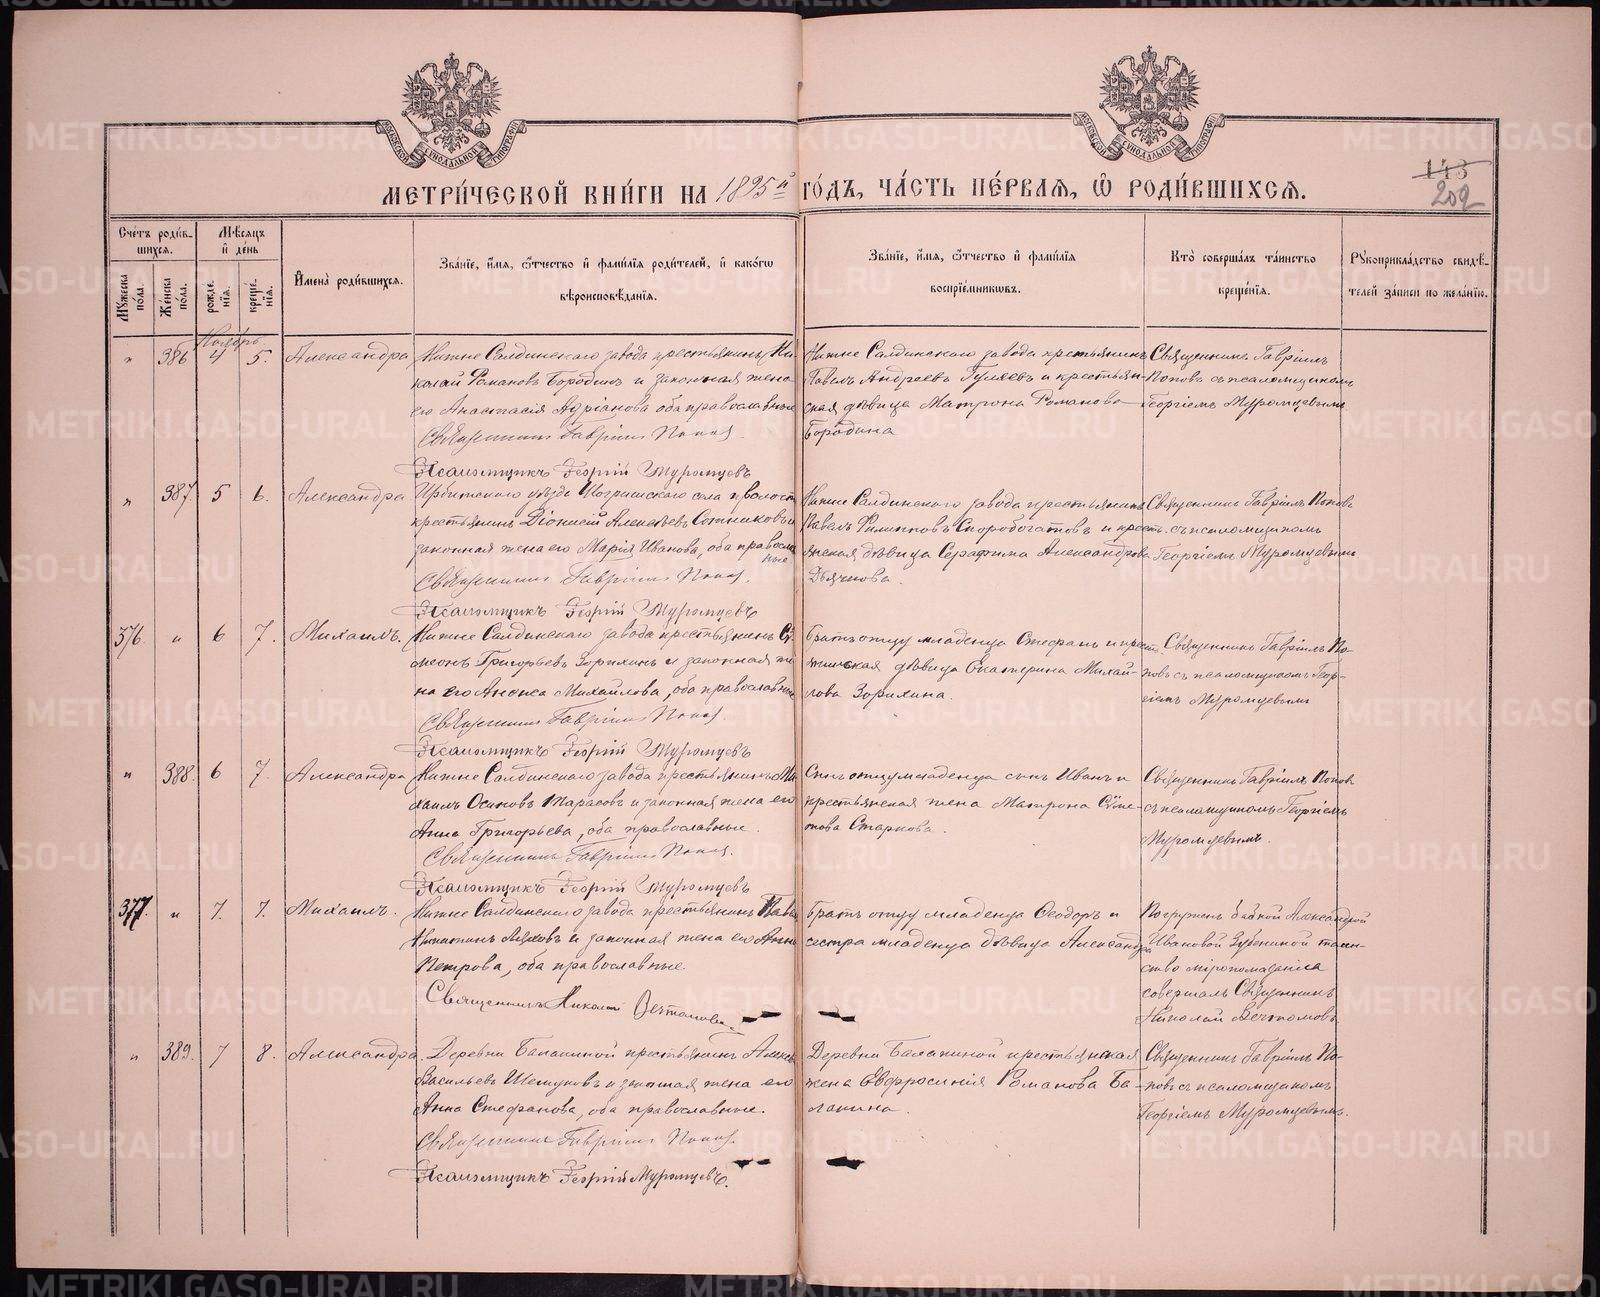 МЕТРИ́ЧЕСКОЙ КНИ́ГИ НА 1895й ГО́ДЪ, ЧА́СТЬ ПЕ́РВАѦ, Ѡ РОДИ́ВШИХСѦ.
143
202
Сче́тъ роди́в-
шихсѧ.
Мꙋ́жеска по́ла.
Же́нска по́ла.
Мѣ́сѧцъ и҆ де́нь
рожде́нїѧ.
креще́нїѧ.
И҆мена̀ роди́вшихсѧ.
Зва́нїе, и҆́мѧ, ѻ҆́тчество и҆ фами́лїѧ роди́телей, и҆ како́гѡ
вѣроисповѣ́данїѧ.
Зва́нїе, и҆́мѧ, ѻ҆́тчество и҆ фами́лїѧ
воспрїе́мникѡвъ.
Кто̀ соверша́лъ та́инство
креще́нїѧ.
Рꙋкоприкла́дство свидѣ́-
телей за́писи по жела́нїю.
Ноябрь
" 386 4 5. Александра
Нижне Салдинскаго завода крестьянинъ Ни-
колай Романовъ Бородинъ и законная жена
его Анастасія Адріанова оба православные
Священникъ Гавріилъ Поповъ.
Псаломщикъ Георгій Муромцевъ
Нижне Салдинскаго завода крестьянинъ
Павелъ Андреевъ Гуляевъ и крестьян-
ская дѣвица Матрона Романова
Бородина
Священникъ Гавріилъ
Поповъ съ псаломщикомъ
Георгіемъ Муромцевымъ
" 387. 5 6. Александра
Ирбитскаго уѣзда села и волости
крестьянинъ Діонисій Алексѣевъ Сотниковъ и
законная жена его Марія Иванова, оба православ
ные
Священникъ Гавріилъ Поповъ.
Псаломщикъ Георгій Муромцевъ
Нижне Салдинскаго завода крестьянинъ
Павелъ Филипповъ Скоробогатовъ и крест-
янская дѣвица Серафима Александрова
Дьячкова.
Священникъ Гавріилъ Поповъ
съ псаломщикомъ
Георгіемъ Муромцевымъ
376. " 6 7. Михаилъ.
Нижне Салдинскаго завода крестьянинъ Си-
меонъ Григорьевъ Зорихинъ и законная же
на его Анисья Михайлова, оба православные
Священникъ Гавріилъ Поповъ.
Псаломщикъ Георгій Муромцевъ
Братъ отцу младенца Стефанъ и крест
янская дѣвица Екатерина Михай-
лова Зорихина.
Священникъ Гавріилъ По-
повъ съ псаломщикомъ Геор-
гіемъ Муромцевымъ
" 388. 6 7. Александра
Нижне Салдинскаго завода крестьянинъ Ми
хаилъ Осиповъ Тарасовъ и законная жена его
Анна Григорьева, оба православные.
Священникъ Гавріилъ Поповъ.
Псаломщикъ Георгій Муромцевъ
отцу младенца сынъ Иванъ и
крестьянская жена Матрона Симе-
онова Старкова.
Священникъ Гавріилъ Поповъ
съ псаломщикомъ Георгіемъ
Муромцевымъ.
377. " 7. 7. Михаилъ.
Нижне Салдинскаго завода крестьянинъ Паве
Никитинъ Ляховъ и законная жена его Анна
Петрова, оба православные.
Священникъ Николай Вечтомовъ.
Братъ отцу младенца Ѳеодоръ и
сестра младенца дѣвица Александра
Погруженъ бабкой Александрой
Ивановой Зубкиной таин-
ство мѵропомазанія
совершалъ Священникъ
Николай Вечтомовъ
" 389. 7 8. Александра.
Деревни Балакиной крестьянинъ
Васильевъ Шешуковъ и законная жена его
Анна Стефанова, оба православные.
Священникъ Гавріилъ Поповъ.
Псаломщикъ Георгій Муромцевъ.
Деревни Балакиной крестьянская
жена Евфросинія Романова Ба-
лакина.
Священникъ Гавріилъ По-
повъ съ псаломщикомъ
Георгіемъ Муромцевымъ.
METRIKI.GASO-URAL.RU